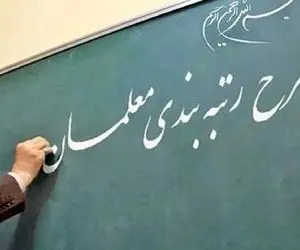 بسم الله الرحمن الرحیم
رح رتبه بندی معلمان